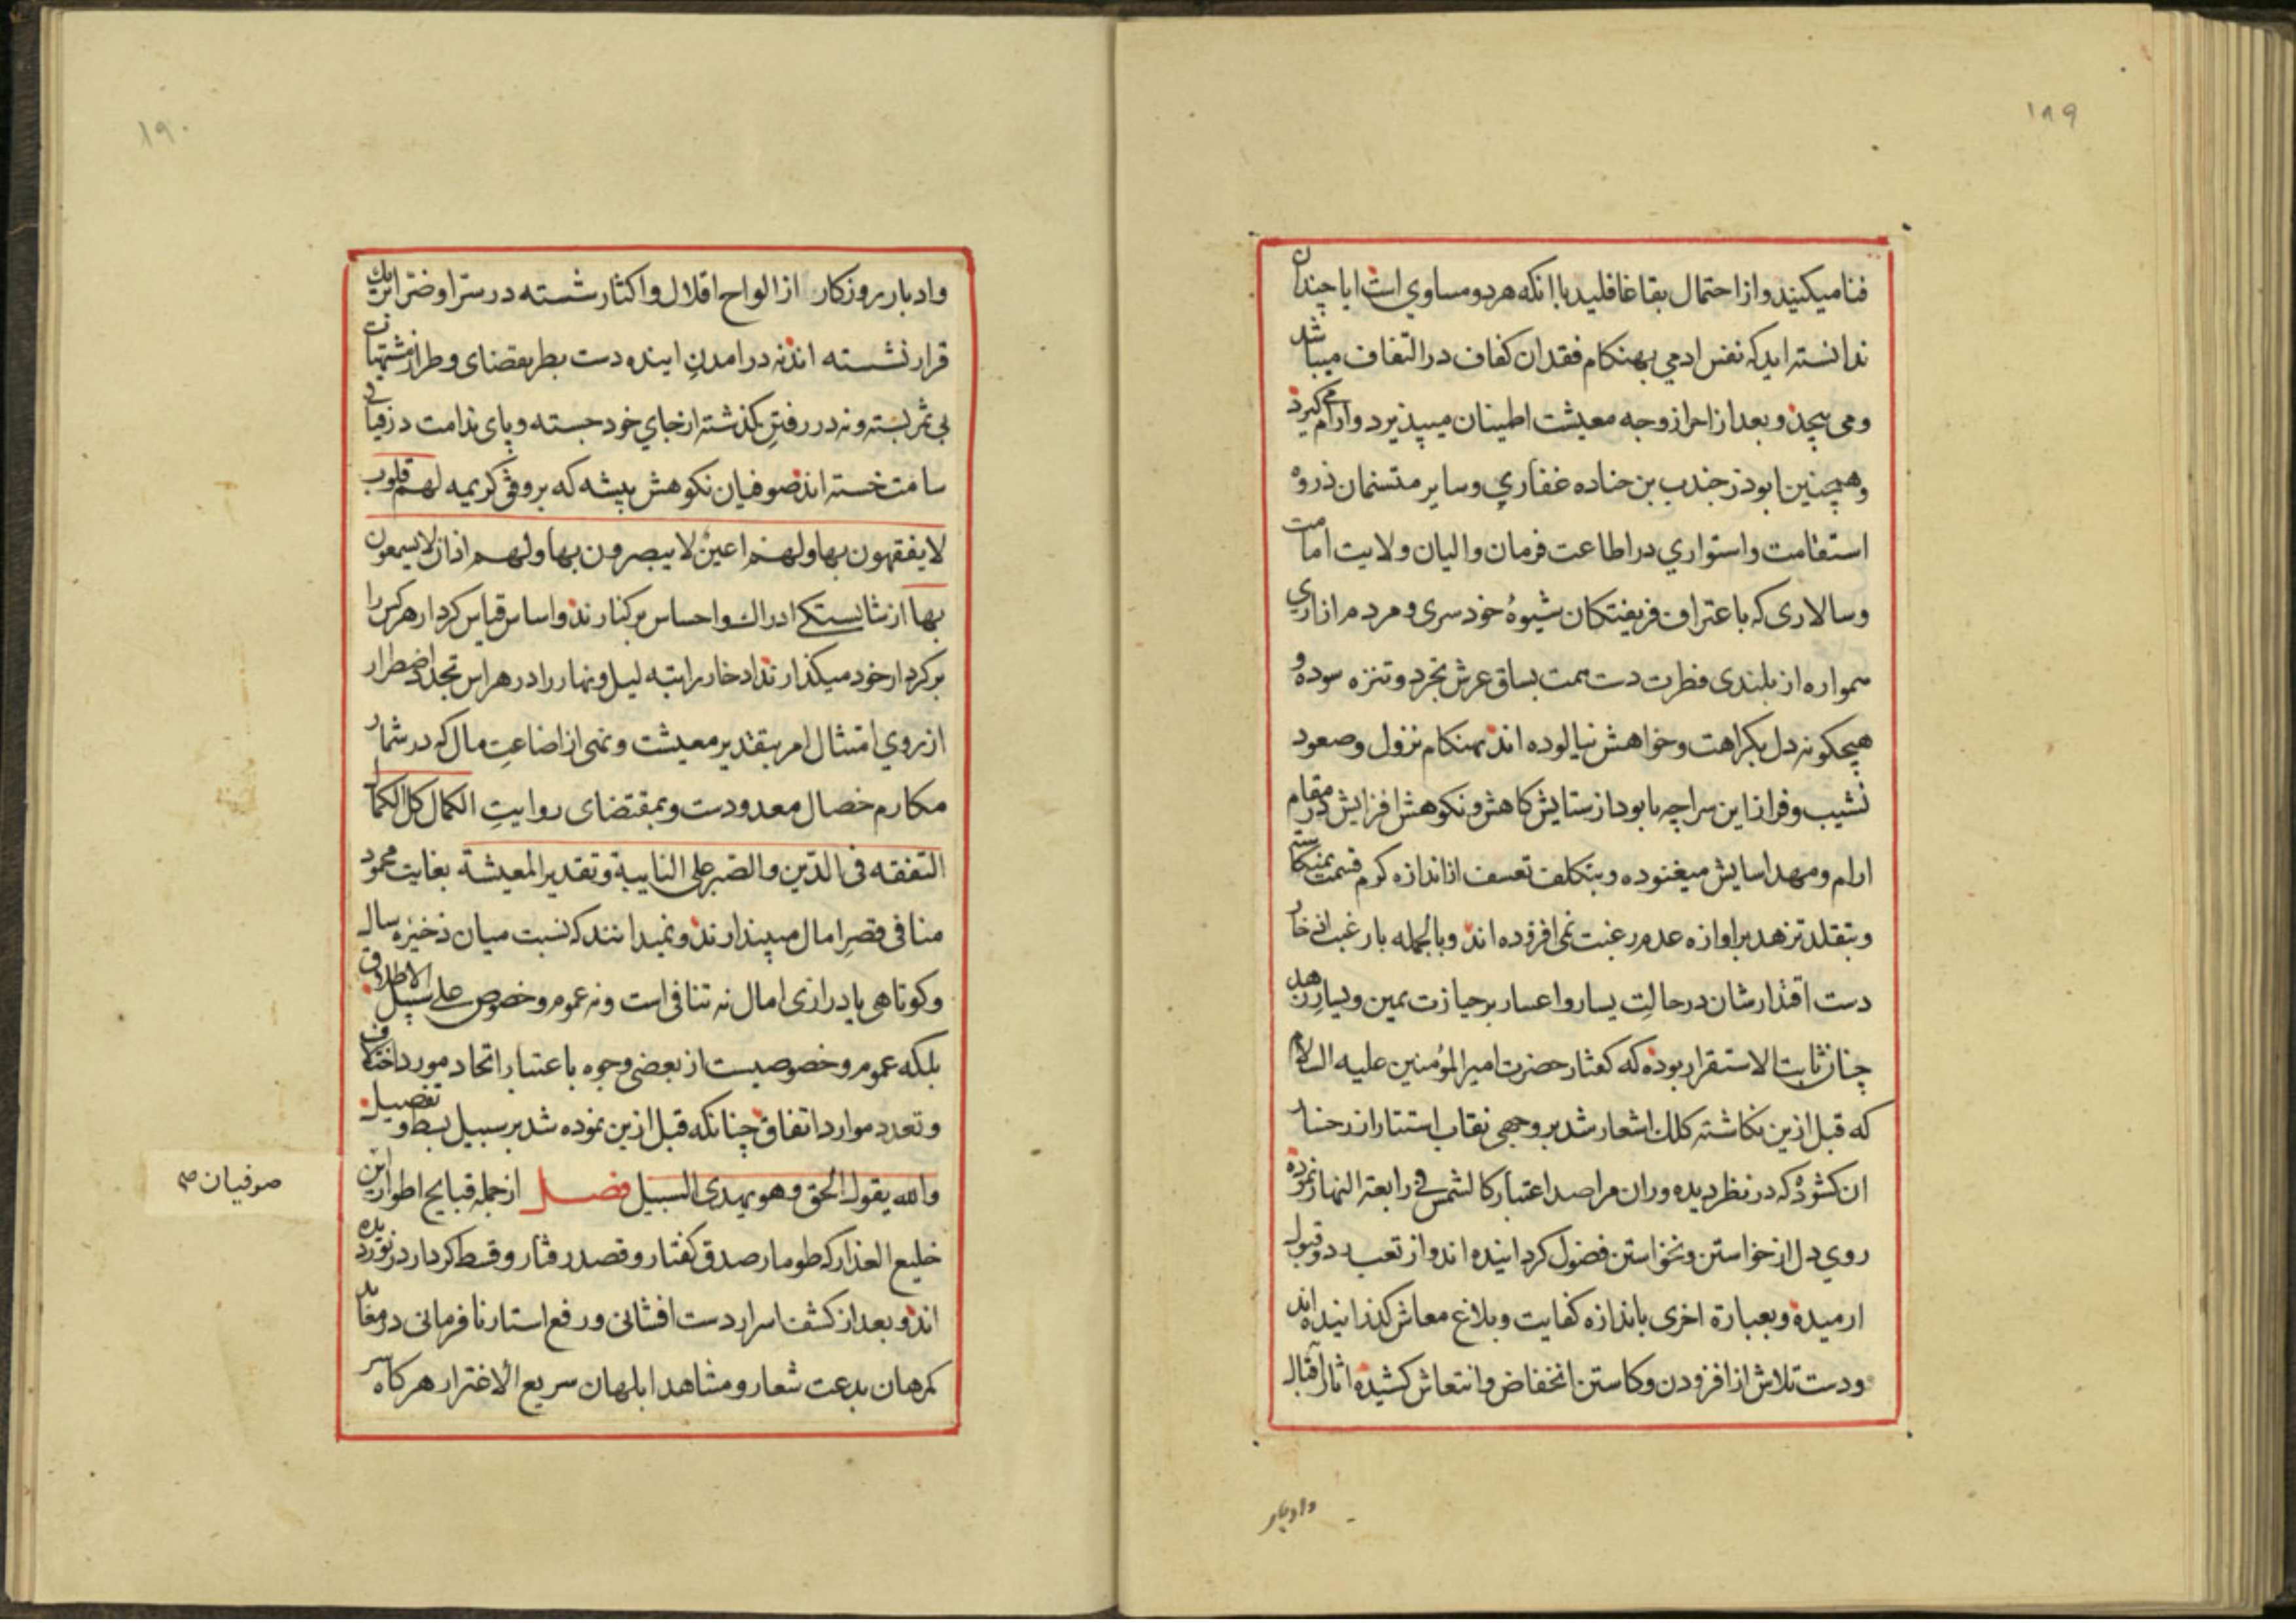 ١٨٩
فنا میکنیند و از احتمال بقا غافلید با انکه هر دو مساوي است ایا چندان
ندانسته اید که نفس ادمی بهنکام فقدان کفاف در التفاف میباشد
و می پیچد و بعد از احراز وجه معیشت اطمینان میپذیرد و ارام می کیرد
و همچنین ابوذر جندب بن جناده غفاري و سایر متسنمان ذروه
استقامت و استواري در اطاعت فرمان والیان ولایت امامت
و سالاری که باعتراف فریفتکان شیوهٔ خود سری و مردم ازاری
همواره از بلندی فطرت دست همت بساق عرش تجرد و تنزه سوده و
هیچکونه دل بکراهت و خواهش نیالوده اند بهنکام نزول و صعود
نشیب و فراز این سراچه نابود از ستایش کاهش و نکوهش افزایش در مقام
ارام و مهد اسایش میغنوده و بتکلف تعسف از اندازه کرم قسمت نمیکاسته
و بتقلد تزهد بر اوازه عدم رغبت نمی افزوده اند و بالجمله بار غبت انی خار
دست اقتدارشان در حالت یسار و اعسار بر حیازت یمین و یسار زهد
چنان ثابت الاستقرار بوده که کفتار حضرت امیر المؤمنین علیه السلام
که قبل ازین نکاشته کلک اشعار شد بر وجهی نقاب استتار از رخسار
ان کشوده که در نظر دیده وران مراصد اعتبار کالشمس فی رابعة النهار نموده
روي دل از خواستن و نخواستن فضول کردانیده اند و از تعب رد و قبول
ارمیده و بعبارة اخری باندازه کفایت و بلاغ معاش کذرانیده اند
و دست تلاش از افزودن و کاستن انخفاض و انتعاش کشیده اثار اقبال
وادبار
١٩٠
و ادبار روزکار از الواح اقلال و اکثار شسته در سرّا و ضرّا بریک
قرار نشسته اند نه در امدن اینده دست بطر بقضای وطر از مشتهیات
بی ثمر بسته و نه در رفتن کذشته از جاي خود جسته و پای ندامت در فیافی
سامت خسته اند صوفیان نکوهش پیشه که بر وفق کریمه لهم قلوب
لا یفقهون بها و لهم اعین لا یبصرون بها و لهم اذان لا یسمعون
بها از شایستکی ادراک و احساس بر کنارند و اساس قیاس کردار هر کس را
بر کردار خود میکذارند ادخار راتبه لیل و نهار را در هراس تجدد اضطرار
از روي امتثال امر بتقدیر معیشت و نهی از اضاعت مال که در شمار
مکارم خصال معدودست و بمقتضای روایت الکمال کل الکمال
التفقه فی الدّین و الصّبر علی النایبة و تقدیر المعیشة بغایت محمود
منافی قصر امال میپندارند و نمیدانند که نسبت میان ذخیره سال
و کوتاهی یا درازی امال نه تنافی است و نه عموم و خصوص علی سبیل الاطلاق
بلکه عموم و خصوصیست از بعضی وجوه باعتبار اتحاد مورد اختلاف
و تعدد موارد اتفاق چنانکه قبل ازین نموده شد بر سبیل بسط و تفصیل
و الله یقول الحق و هو یهدی السبیل فصـل از جمله قبایح اطوار این
خلیع العذار که طومار صدق کفتار و قصد رفتار و قسط کردار در نوردیده
اند و بعد از کشف اسرار دست افشانی و رفع استار نافرمانی در معابد
کمرهان بدعت شعار و مشاهد ابلهان سریع الاغترار هر کاه سر
صوفیان صح